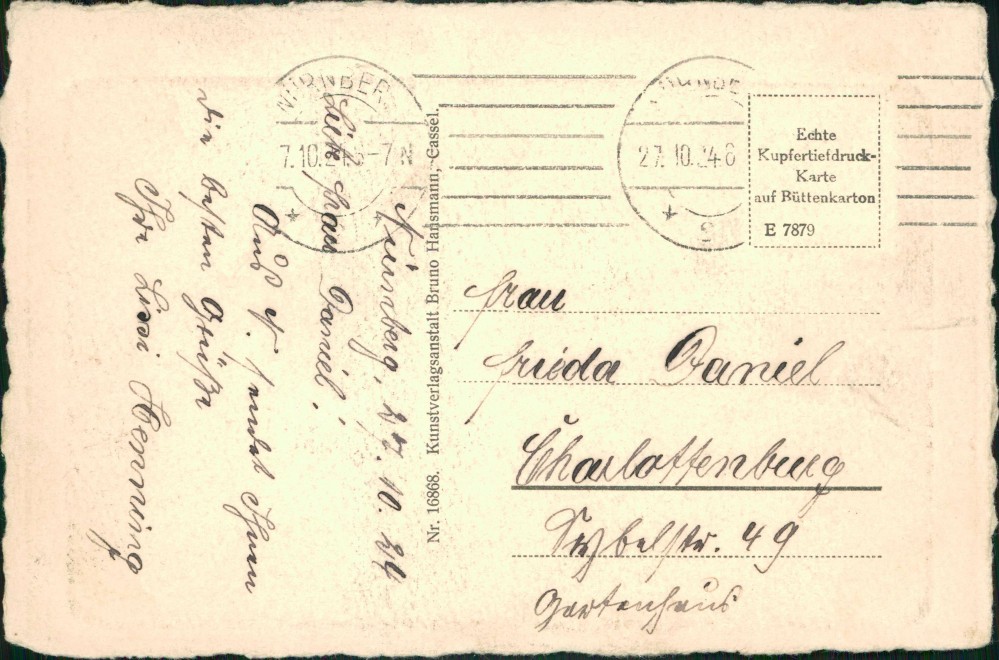 Nürnberg, 27. 10. 24
Liebe Frau Daniel!
Aus N. sendet Ihnen
die besten Grüße
Ihre Lissi Henning
Nr. 16868. Kunstverlagsanstalt Bruno Hansmann, Cassel.
NÜRNBER
7.10.24 6-7 N
NÜRNBE
27.10.24 6
2
Echte
Kupfertiefdruck-
Karte
auf Büttenkarton
E 7879
Frau
Frieda Daniel
Charlottenburg
Sybelstr. 49
Gartenhaus